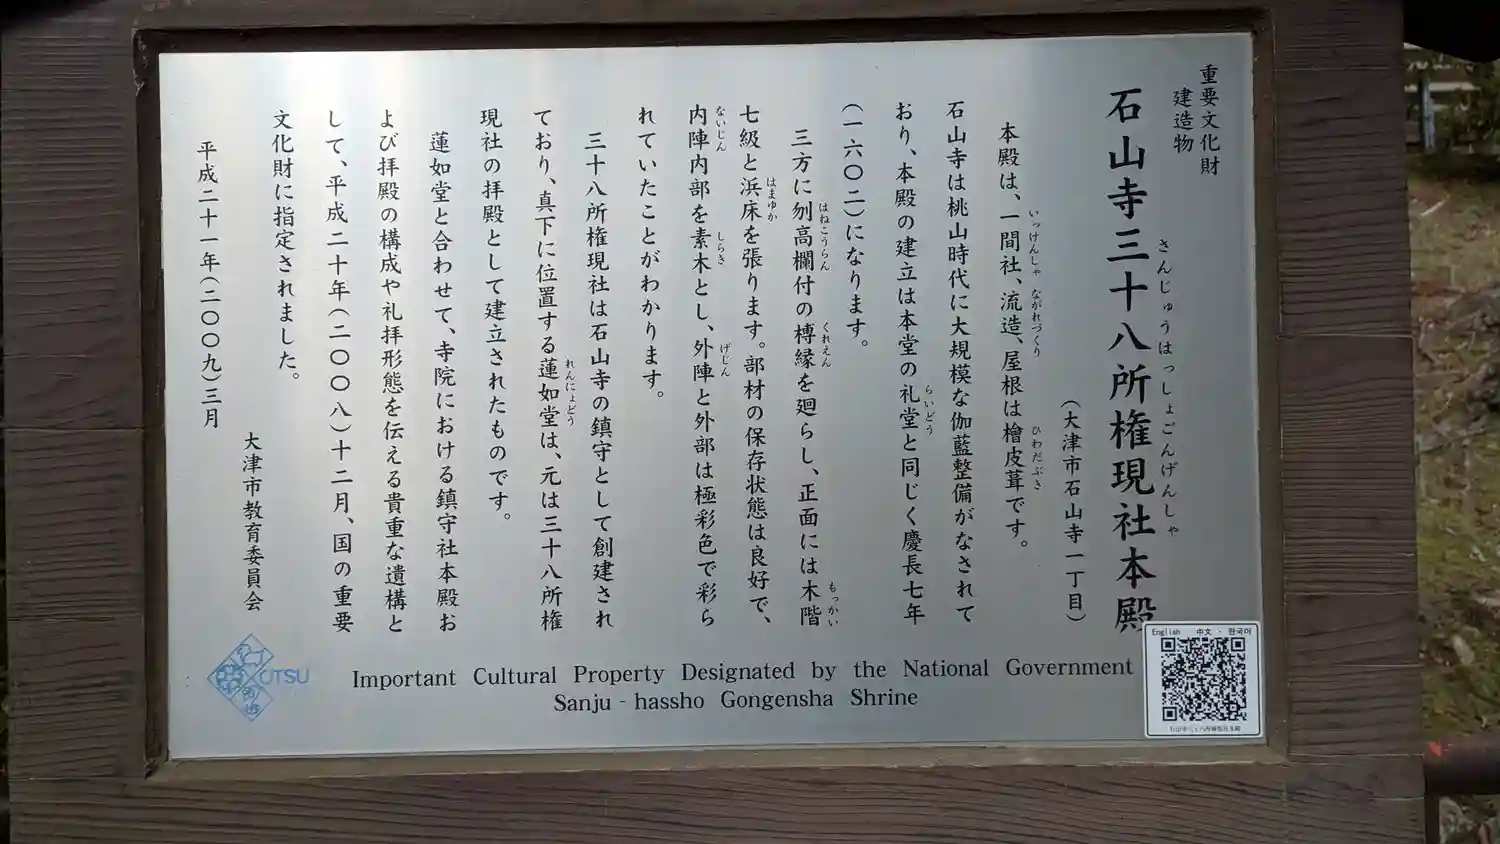 重要文化財
建造物
石山寺三十八所権現社本殿
さんじゅうはっしょごんげんしゃ
(大津市石山寺一丁目)
本殿は、一間社、流造、屋根は檜皮葺です。
いっけんしゃ ながれづくり ひわだぶき
石山寺は桃山時代に大規模な伽藍整備がなされて
おり、本殿の建立は本堂の礼堂と同じく慶長七年
らいどう
(一六〇二)になります。
三方に刎高欄付の榑縁を廻らし、正面には木階
はねこうらん くれえん もっかい
七級と浜床を張ります。部材の保存状態は良好で、
はまゆか
内陣内部を素木とし、外陣と外部は極彩色で彩ら
ないじん しらき げじん
れていたことがわかります。
三十八所権現社は石山寺の鎮守として創建され
ており、真下に位置する蓮如堂は、元は三十八所権
れんにょどう
現社の拝殿として建立されたものです。
蓮如堂と合わせて、寺院における鎮守社本殿お
よび拝殿の構成や礼拝形態を伝える貴重な遺構と
して、平成二十年(二〇〇八)十二月、国の重要
文化財に指定されました。
大津市教育委員会
平成二十一年(二〇〇九)三月
OTSU
Important Cultural Property Designated by the National Government
Sanju - hassho Gongensha Shrine
English 中文 · 한국어